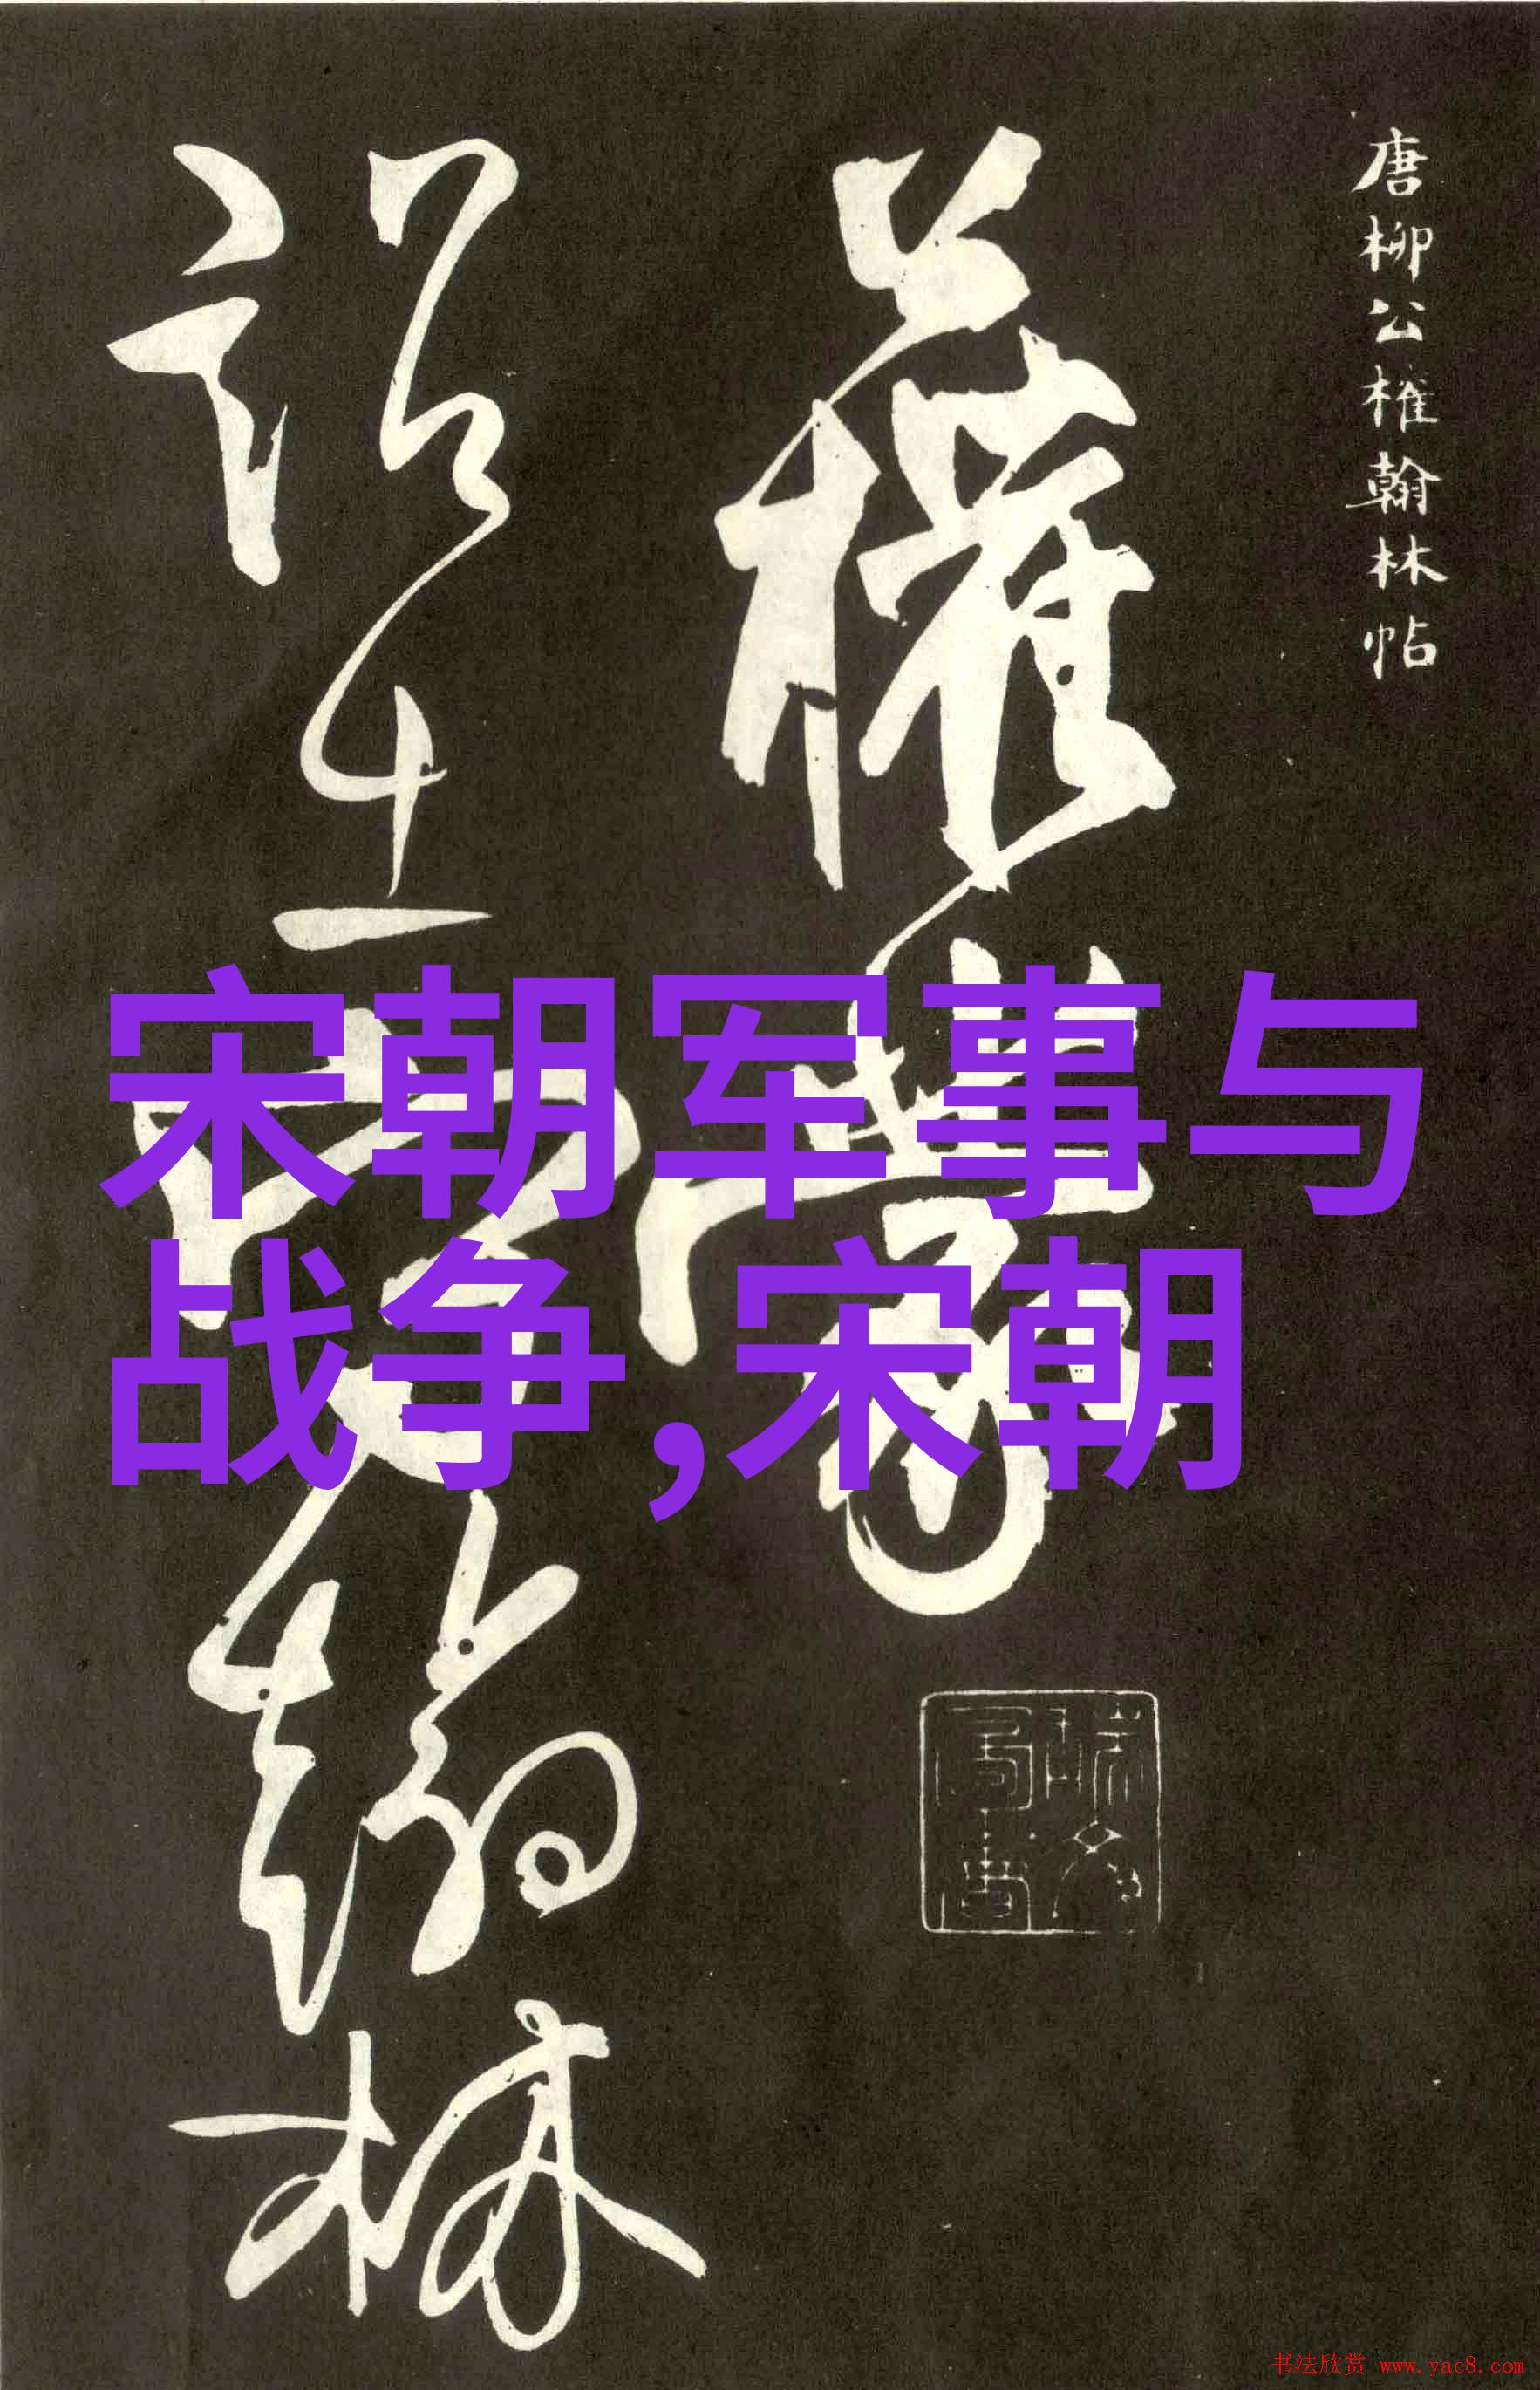 唐柳公權翰林帖
權蒙
詔出
翰林
宋朝军事与
战争,宋朝
书法欣赏 www.yac8.com